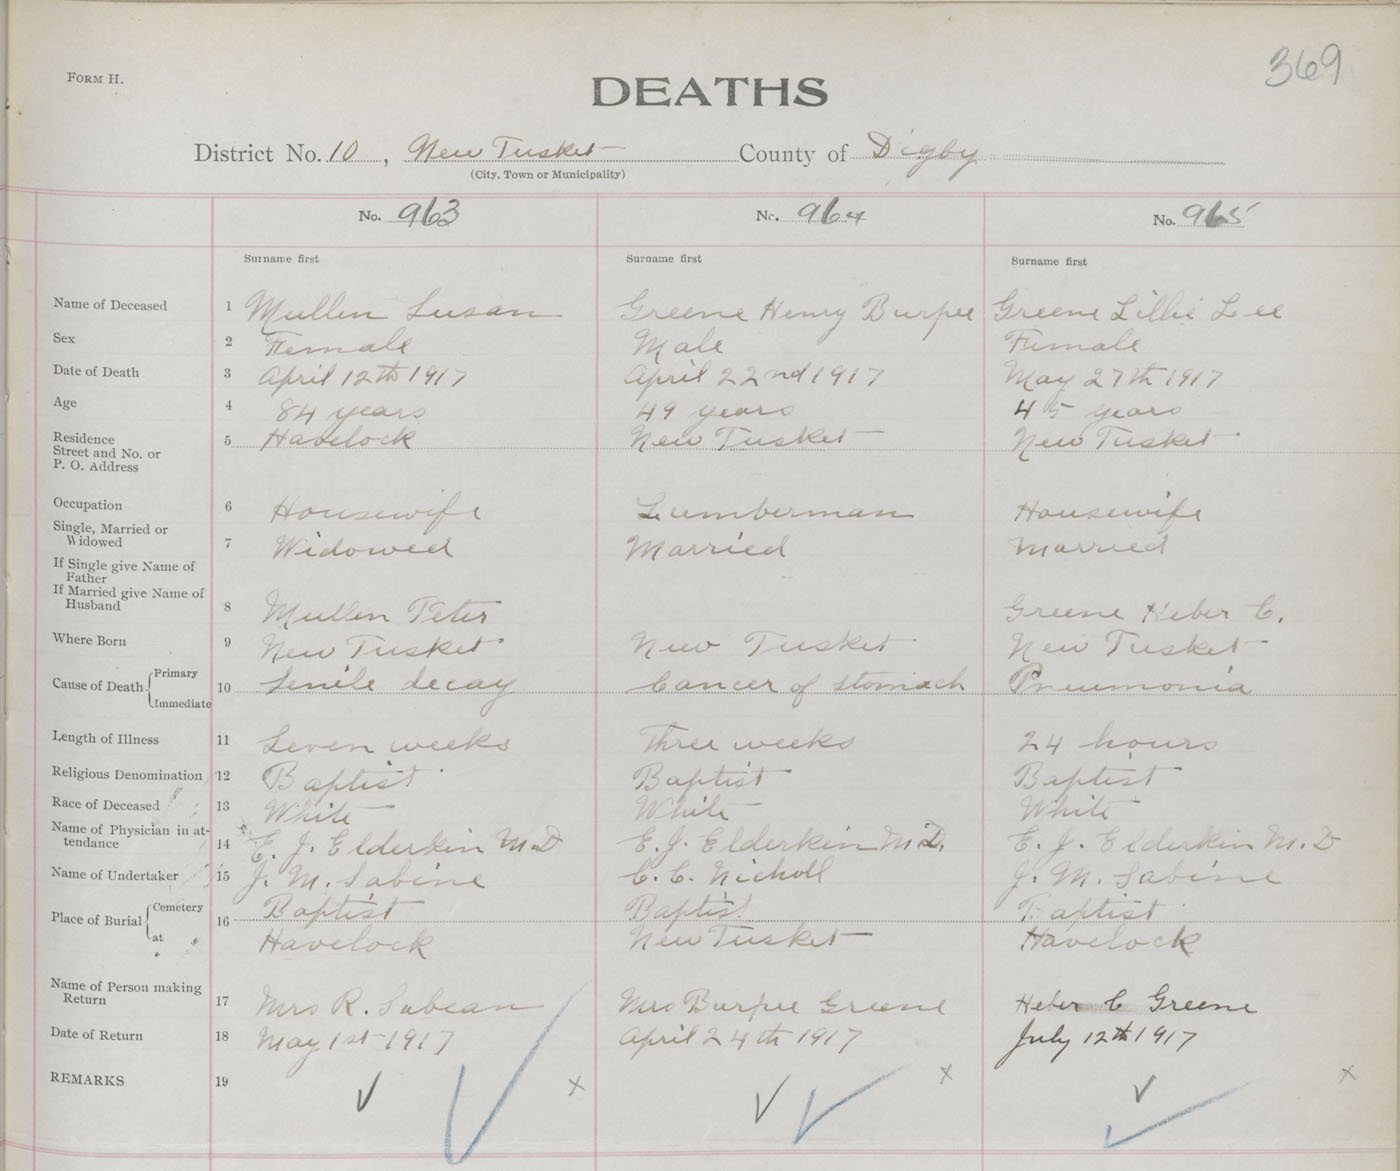 369
FORM H.
DEATHS
District No. 10, New Tusket County of Digby
(City, Town or Municipality)
No. 963 No. 964 No. 965
Surname first Surname first Surname first
Name of Deceased 1 Mullen Susan Greene Henry Burpee Greene Lillie Lee
Sex 2 Female Male Female
Date of Death 3 April 12th 1917 April 22nd 1917 May 27th 1917
Age 4 84 years 49 years 45 years
Residence
Street and No. or
P. O. Address 5 Havelock New Tusket New Tusket
Occupation 6 Housewife Lumberman Housewife
Single, Married or
Widowed 7 Widowed Married Married
If Single give Name of
Father
If Married give Name of
Husband 8 Mullen Peter Greene Heber C.
Where Born 9 New Tusket New Tusket New Tusket
Cause of Death Primary
Immediate 10 Senile decay Cancer of stomach Pneumonia
Length of Illness 11 Seven weeks Three weeks 24 hours
Religious Denomination 12 Baptist Baptist Baptist
Race of Deceased 13 White White White
Name of Physician in at-
tendance 14 E. J. Elderkin M.D E. J. Elderkin M.D. E. J. Elderkin M.D
Name of Undertaker 15 J. M. Sabine C. C. Nicholl J. M. Sabine
Place of Burial Cemetery 16 Baptist Baptist Baptist
at Havelock New Tusket Havelock
Name of Person making
Return 17 Mrs R. Sabean Mrs Burpee Greene Heber C Greene
Date of Return 18 May 1st 1917 April 24th 1917 July 12th 1917
REMARKS 19